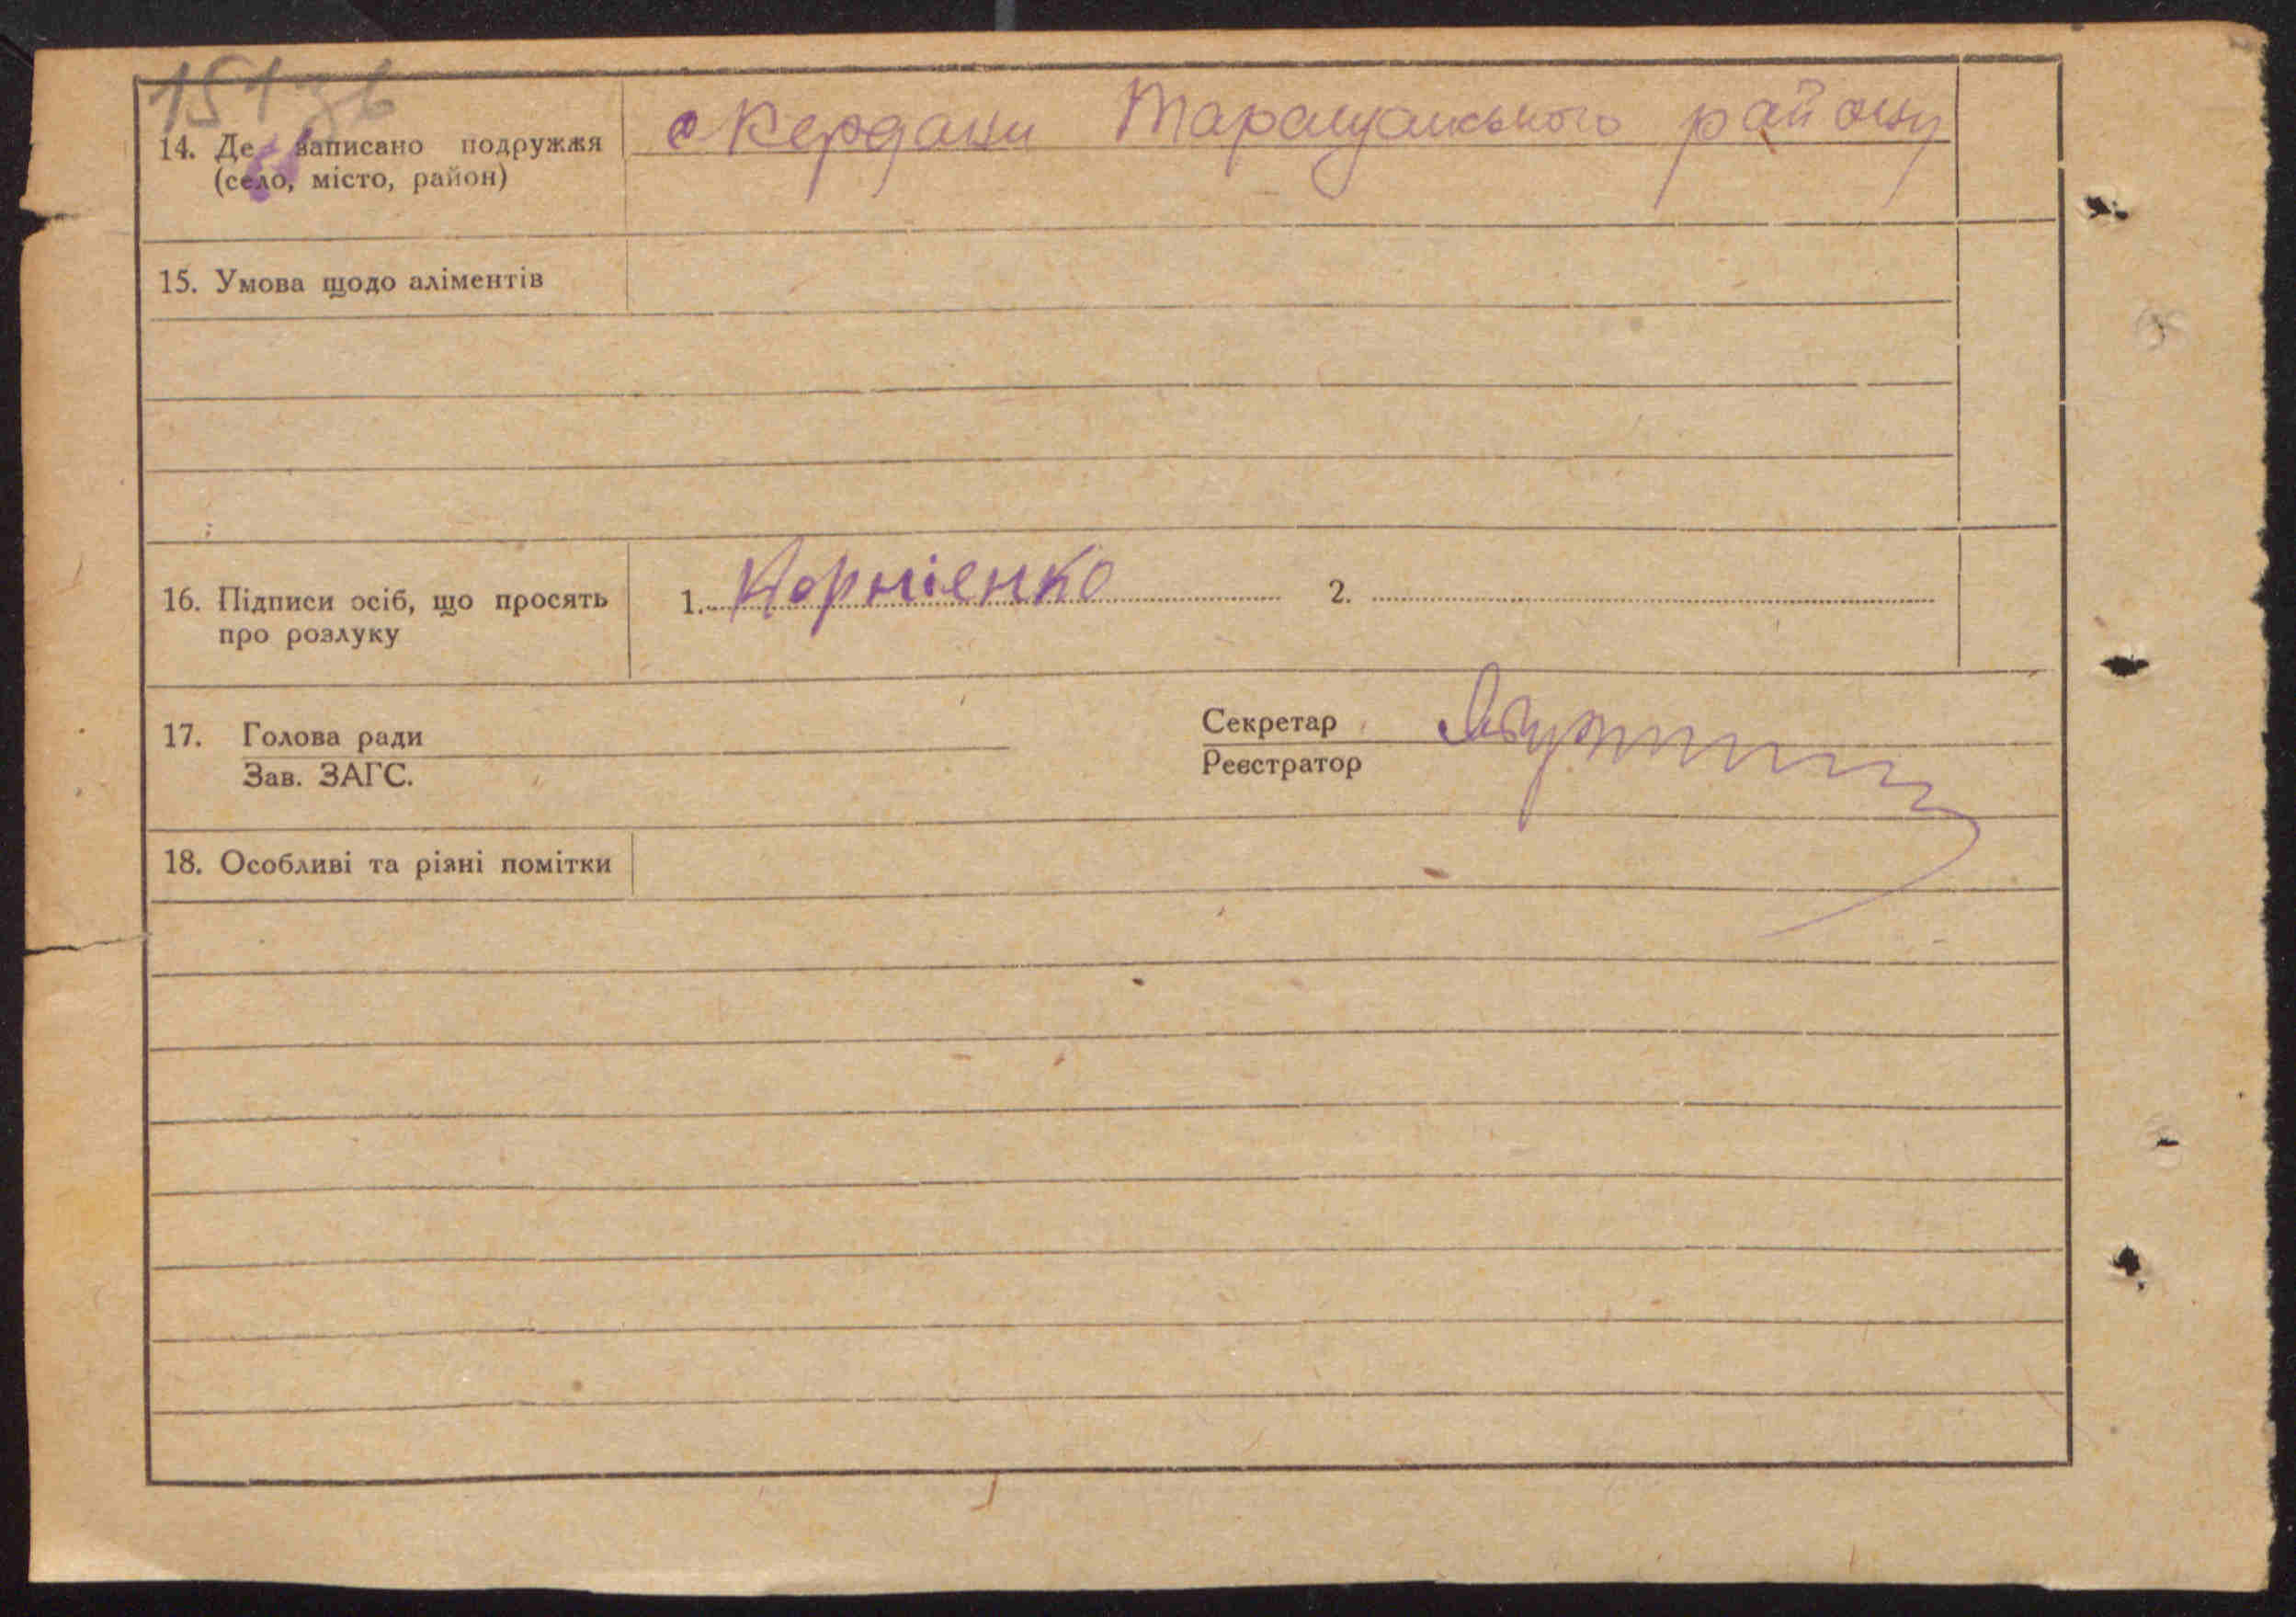 151 зв
14. Де записано подружжя
(село, місто, район)
с Кердани Таращанського району
15. Умова щодо аліментів
16. Підписи осіб, що просять
про розлуку
1. Корніенко 2.
17. Голова ради
Зав. ЗАГС.
Секретар
Реєстратор
18. Особливі та різні помітки